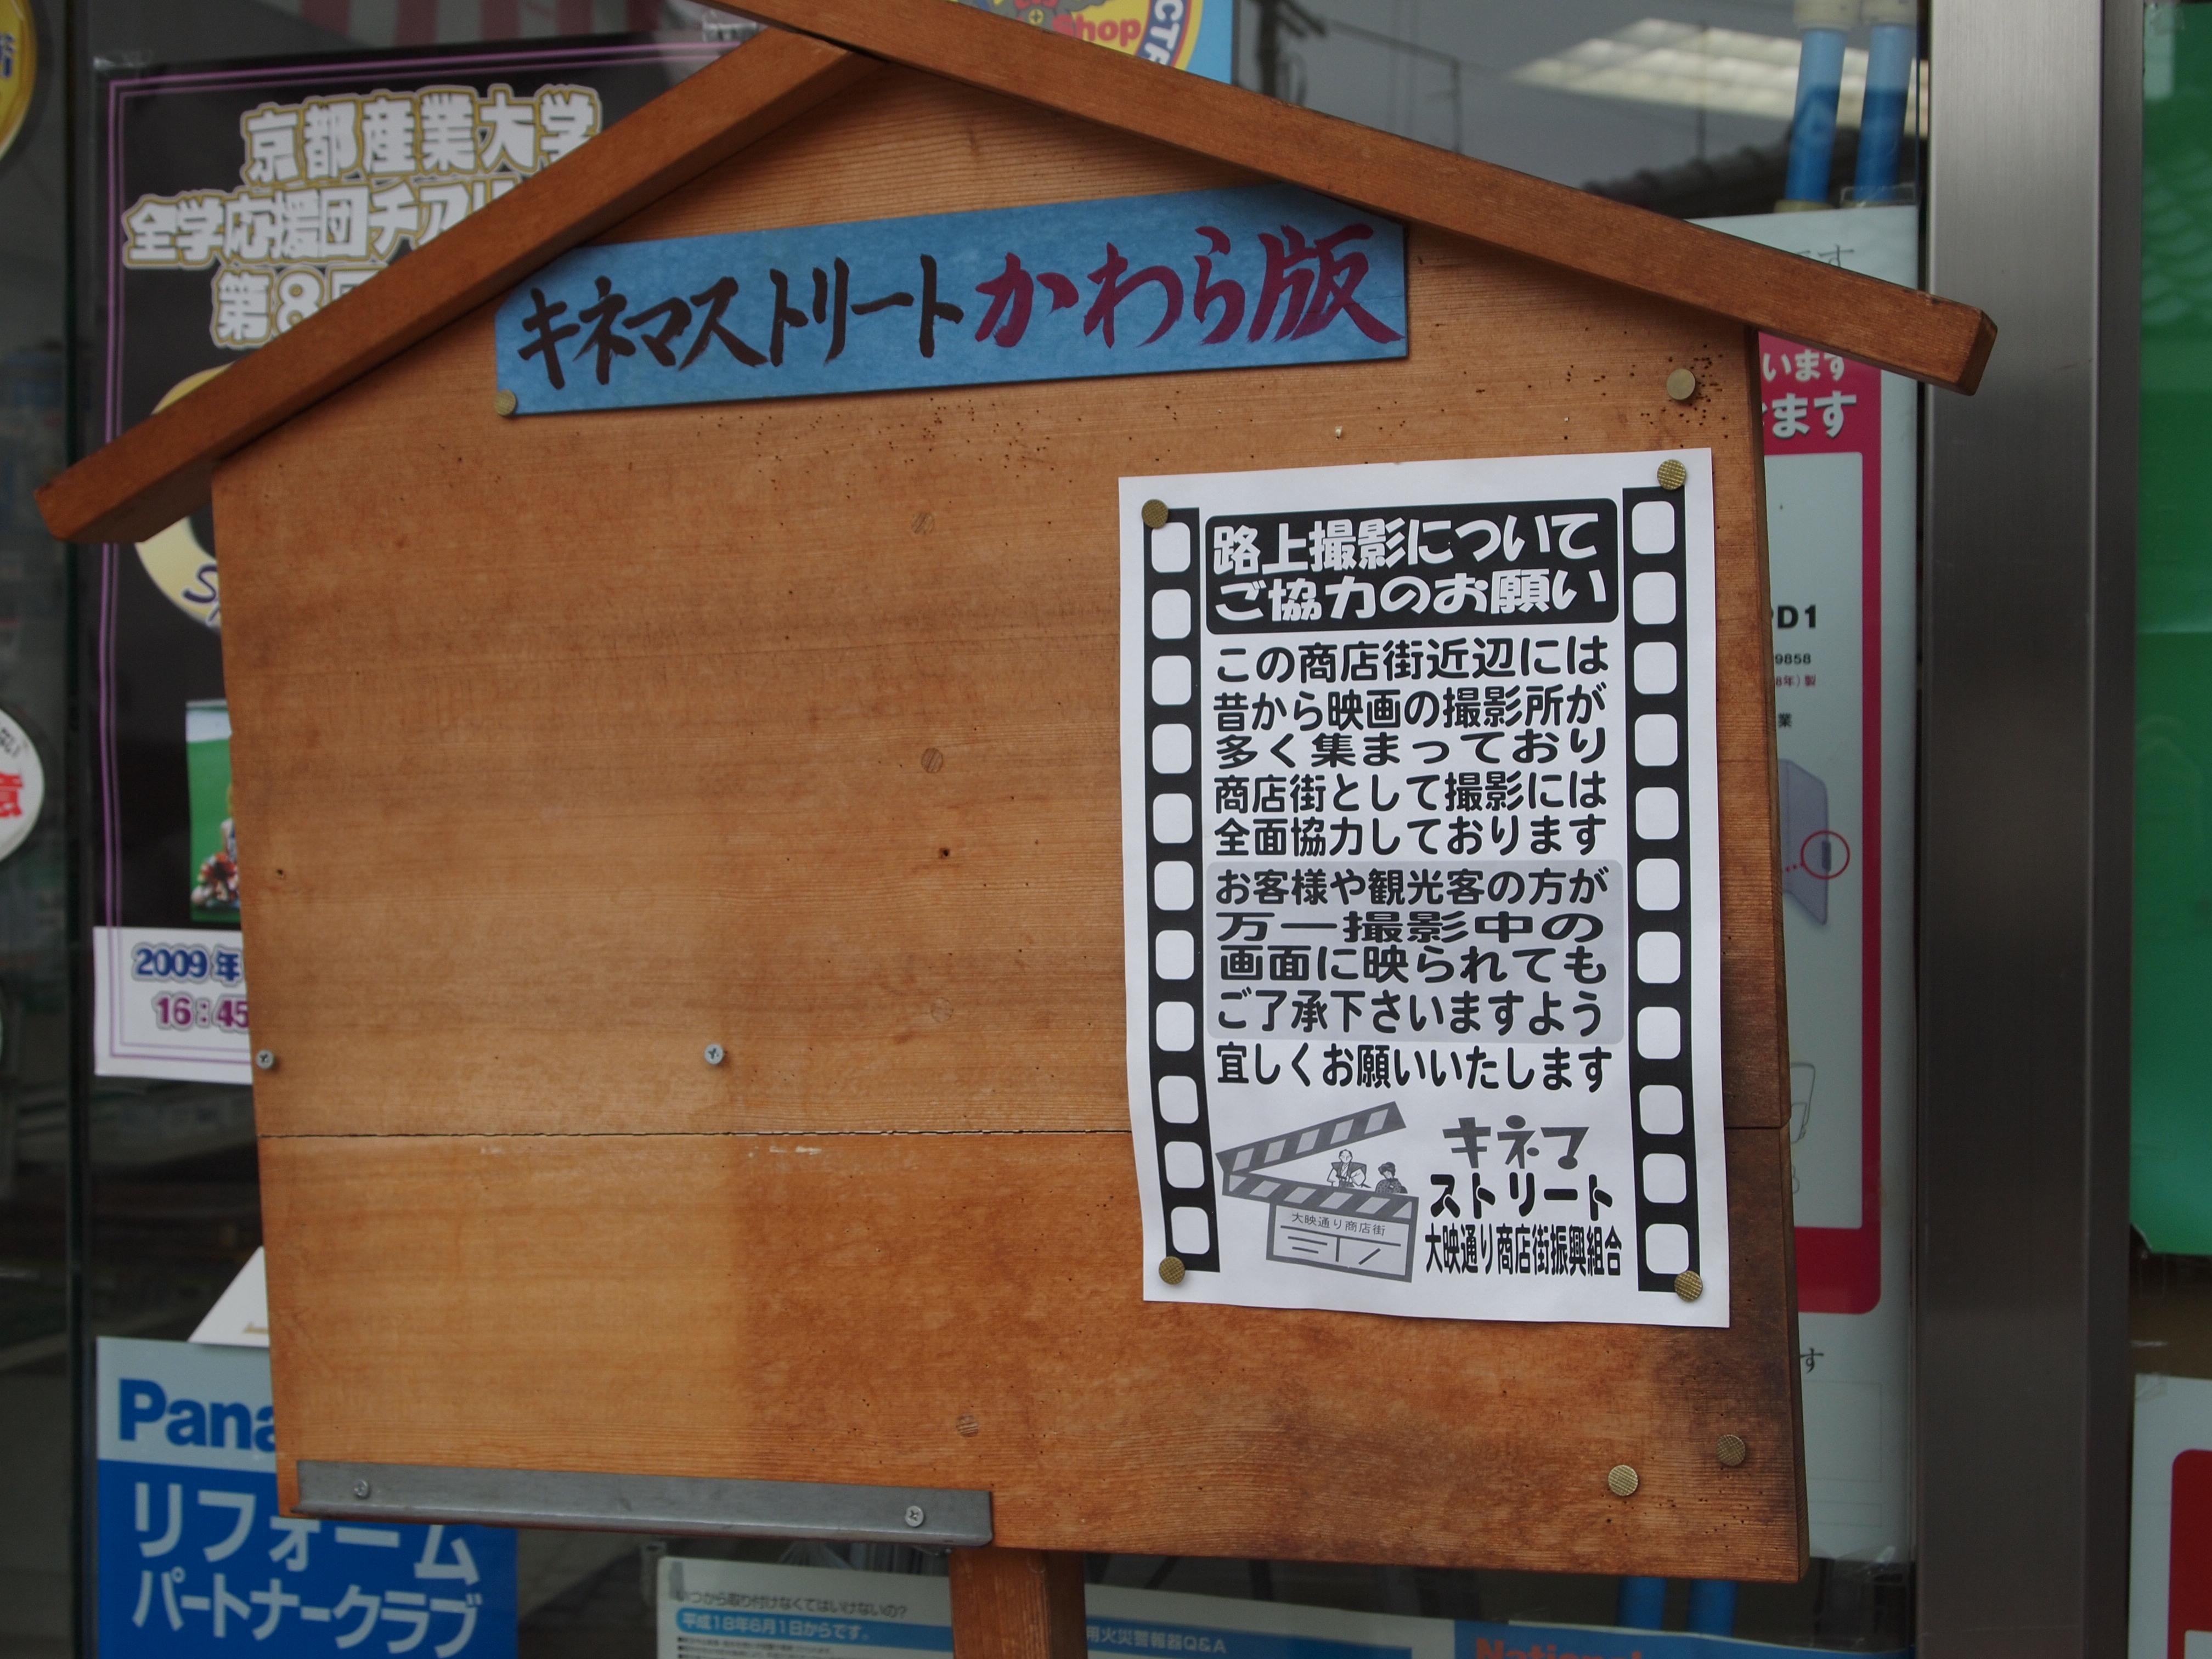 京都産業大学
全学応援団チア
第8
キネマストリートかわら版
路上撮影について
ご協力のお願い
この商店街近辺には
昔から映画の撮影所が
多く集まっており
商店街として撮影には
全面協力しております
お客様や観光客の方が
万一撮影中の
画面に映られても
ご了承下さいますよう
宜しくお願いいたします
キネマ
ストリート
大映通り商店街振興組合
大映通り商店街
2009年
16:45
Pana
リフォーム
パートナークラブ
いつから取り付けなくてはいけないの?
平成18年6月1日からです。
用火災警報器Q&A
hop
います
ます
D1
9858
8年)製
業
す